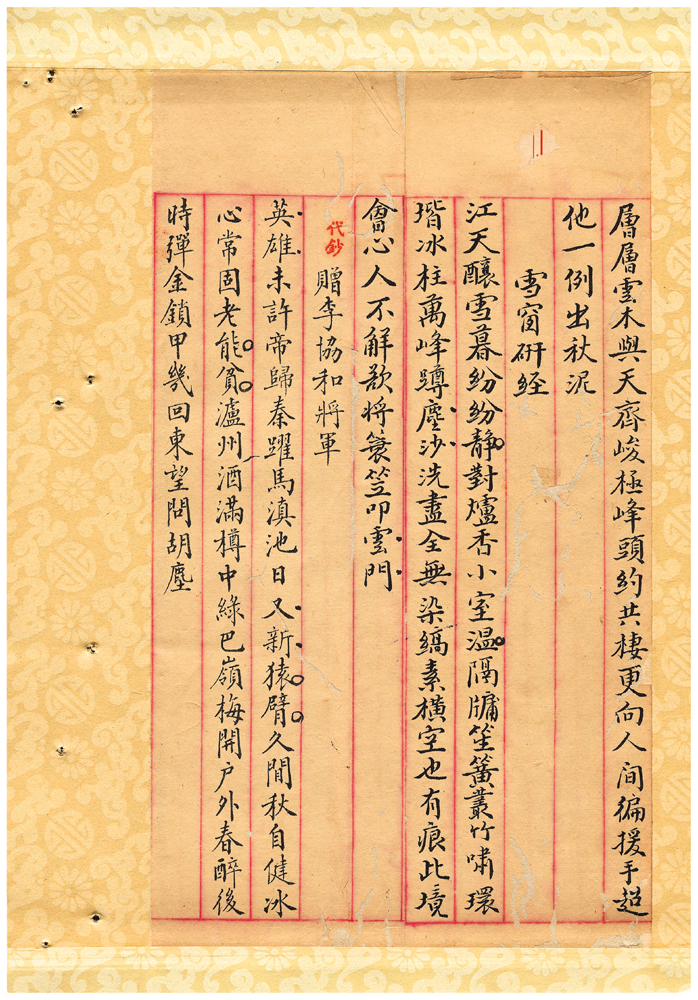 層層雲木與天齊峻極峰頭約共棲更向人間徧援手超
他一例出秋泥
雪窗研經
江天釀雪暮紛紛靜對爐香小室温隔牖笙簧叢竹嘯環
堦冰柱萬峰蹲塵沙洗盡全無染縞素橫空也有痕此境
會心人不解欲將蓑笠叩雲門
代鈔
贈李協和將軍
英雄未許帝歸秦躍馬滇池日又新猿臂久閒秋自健冰
心常固老能貧瀘州酒滿樽中綠巴嶺梅開戶外春醉後
時彈金鎖甲幾回東望問胡塵